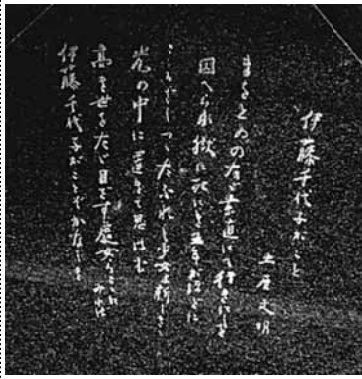 伊藤千代子がこと
土屋文明
まをとめのたゞ素直にて行きにしを
囚へられ獄に死にき五年がほどに
こころざしつつたふれし少女よ新しき
光の中に置きて思はむ
高き世をたゞ目ざす處女らここに
みれば
伊藤千代子がことぞかなしき